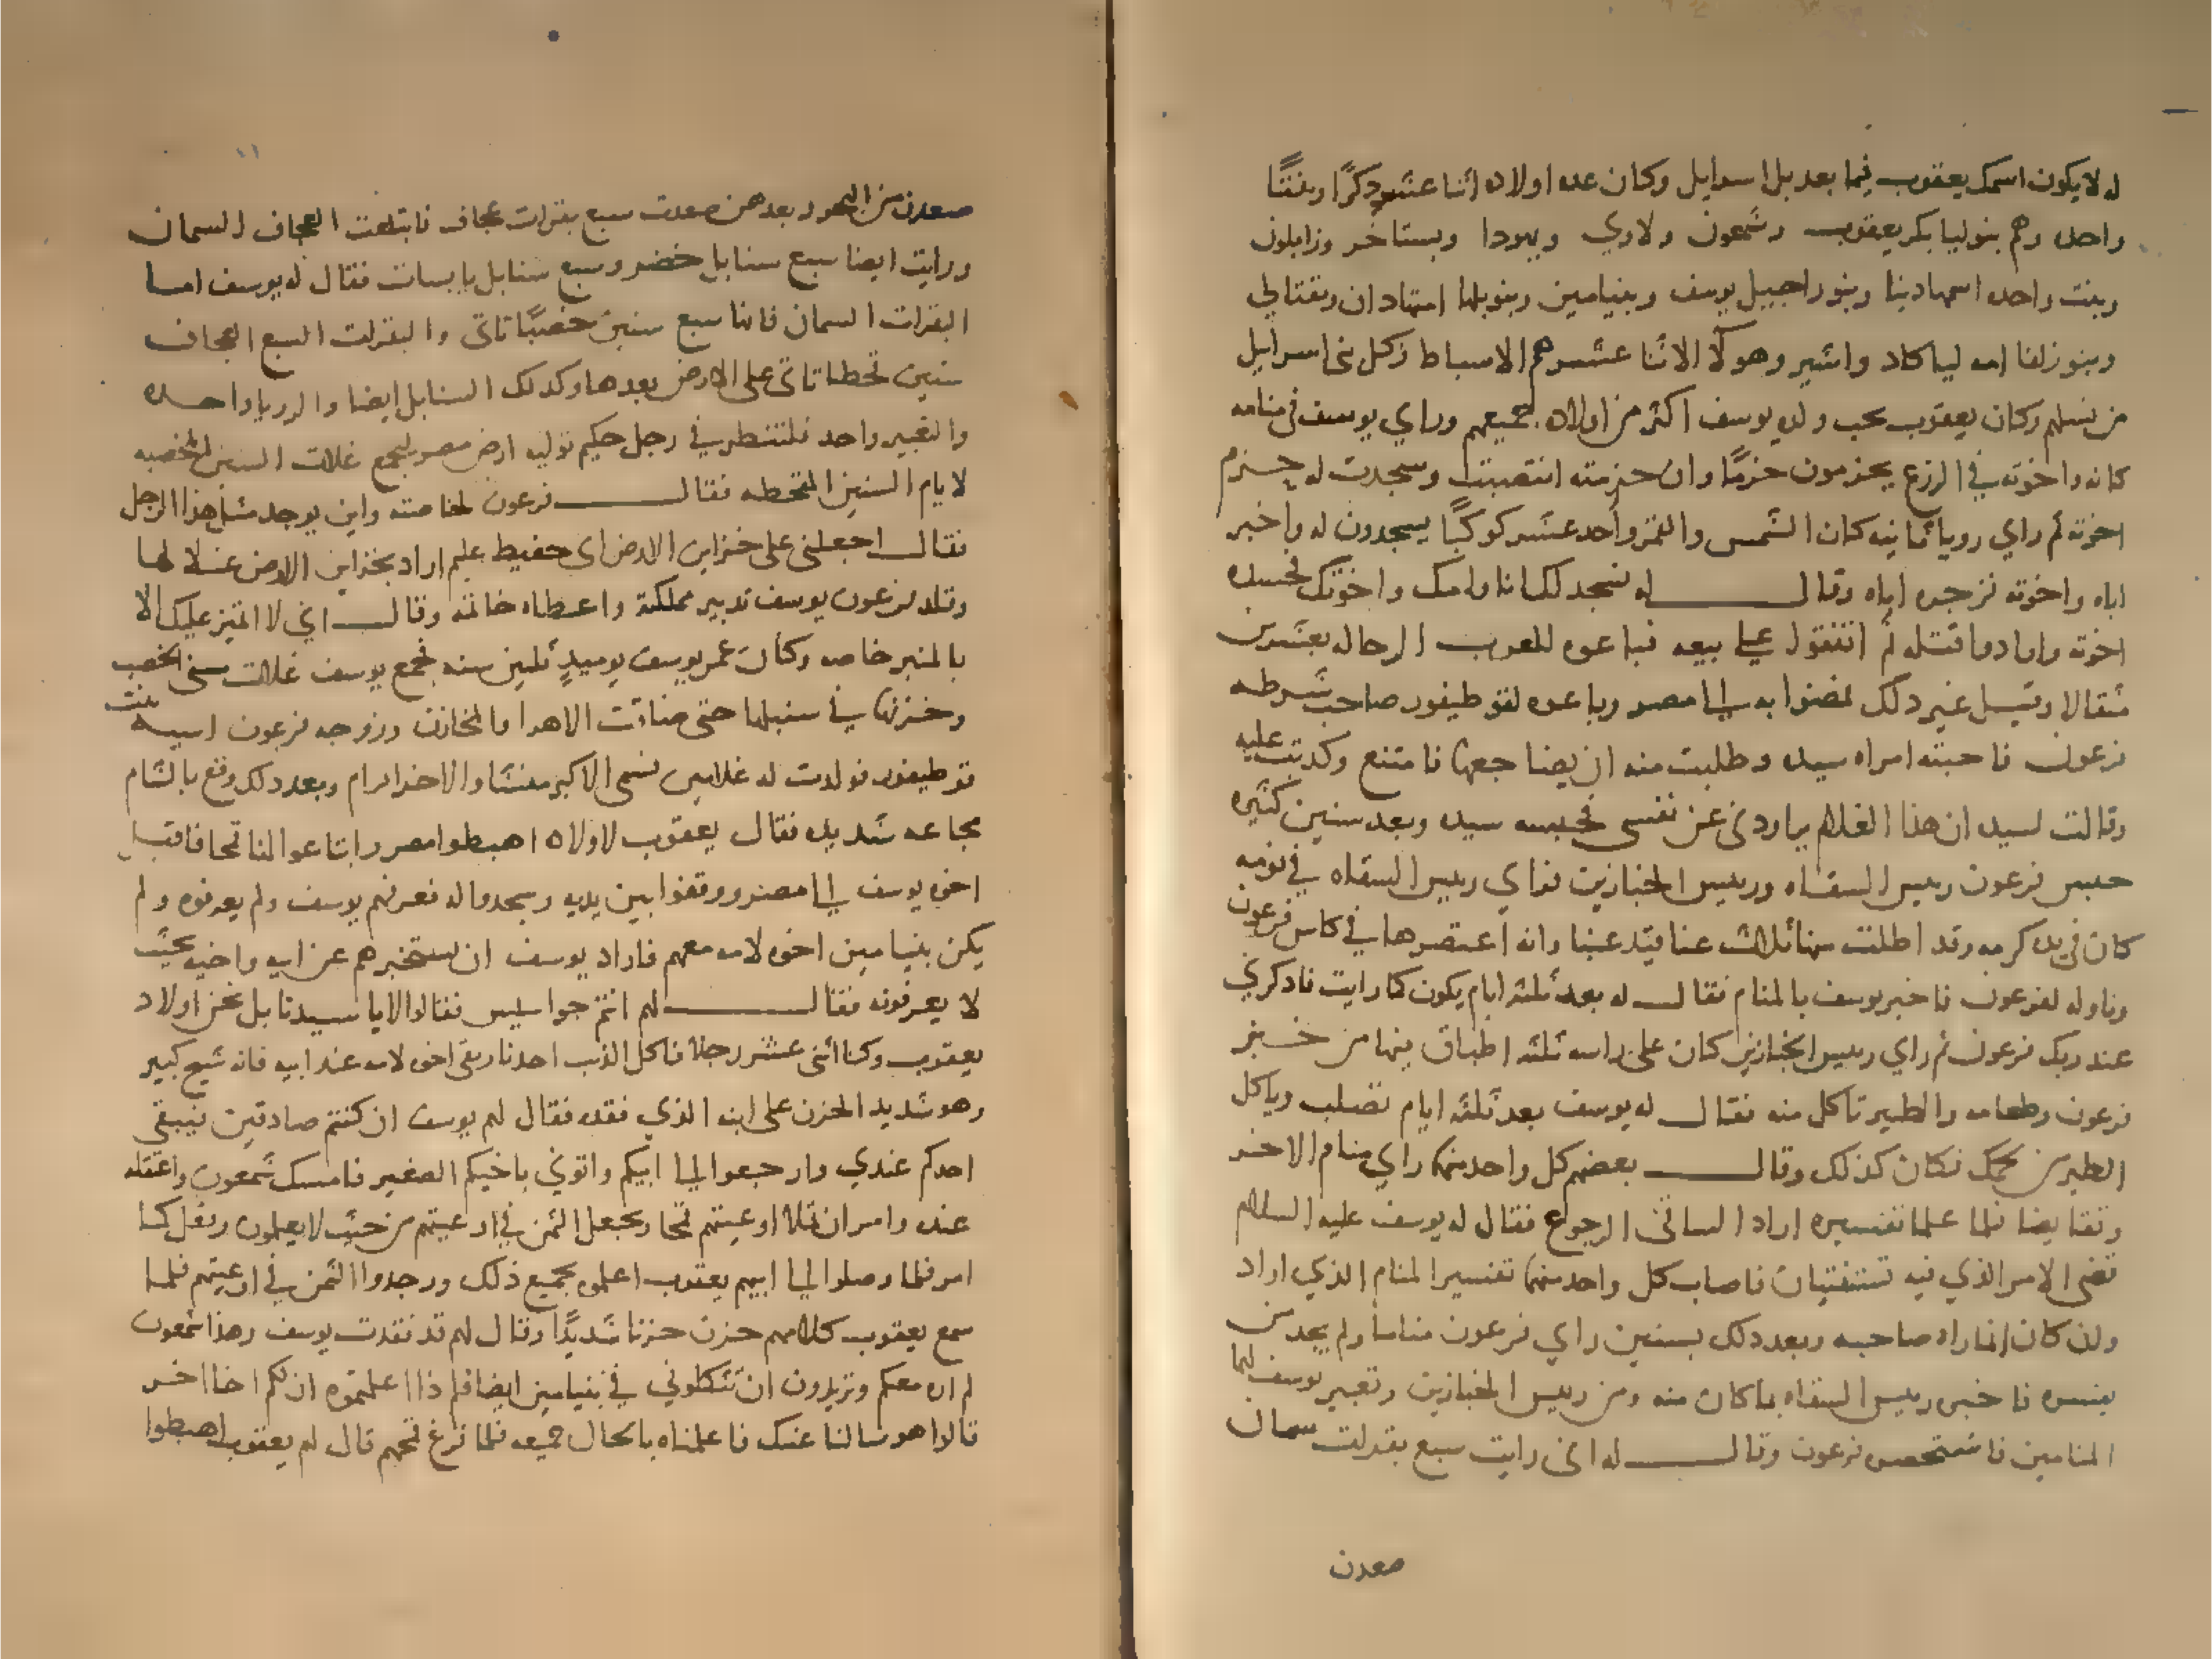 له لا يكون اسمك يعقوب فيما بعد بل اسرايل وكان عده اولاده اثنا عشر ذكرًا وبنتًا
واحده وهم بنو ليا بكر يعقوب وشمعون ولاوي ويهودا ويستاخر وزابلون
وبنت واحده اسمها دينا وبنو راحيل يوسف وبنيامين وبنو بلها امتها دان ونفتالي
وبنو زلفا امه ليا كاد واشير وهولا الاثنا عشر هم الاسباط وكل بني اسرايل
من نسلهم وكان يعقوب يحب ولده يوسف اكثر من اولاده جميعهم وراي يوسف في منامه
كانه واخوته في الزرع يحزمون حزمًا وان حزمته انتصبت وسجدت له حزم
اخوته ثم راي رويا ثانيه كان الشمس والقمر واحد عشر كوكبًا يسجدون له واخبر
اباه واخوته فزجره اباه وقال له نسجد لك انا وامك واخوتك فحسده
اخوته وارادوا قتله ثم اتفقوا علي بيعه فباعوه للعرب الرحاله بعشرين
مثقالا وقيل غير ذلك فمضوا به الي مصر وباعوه لفوطيفور صاحب شرطه
فرعون فاحبته امراه سيده وطلبت منه ان يضاجعها فامتنع وكدبت عليه
وقالت لسيده ان هذا الغلام يراودني عن نفسي فحبسه سيده وبعد سنين كثيره
حبس فرعون رييس السقاه ورييس الخبازين فراي رييس السقاه في نومه
كان في يده كرمه وقد اطلقت منها ثلاث عناقيد عنبا وانه اعتصرها في كاس فرعون
وناوله لفرعون فاخبر يوسف بالمنام فقال له بعد ثلثه ايام يكون كما رايت فادكرني
عند ربك فرعون ثم راي رييس الخبازين كان علي راسه ثلثه اطباق فيها من خبز
فرعون وطعامه والطير تاكل منه فقال له يوسف بعد ثلثه ايام تصلب وياكل
الطير من لحمك فكان كذلك وقال بعضهم كل واحد منهما راي منام الاخر
وتقايضا فلما علما تفسيره اراد الساقي الرجوع فقال له يوسف عليه السلام
قضي الامر الذي فيه تستفتيان فاصاب كل واحد منهما تفسير المنام الذي اراد
ولن كان انما راه صاحبه وبعد ذلك بسنين راي فرعون مناما ولم يجد من
يفسره فاخبره رييس السقاه بما كان منه ومن رييس الخبازين وتعبير يوسف لهما
المنامين فاستحضره فرعون وقال له اني رايت سبع بقرات سمان
صعدن
١١
صعدن من البحر وبعدهن صعدت سبع بقرات عجاف فابتلعت العجاف السمان
ورايت ايضا سبع سنابل خضر وسبع سنابل يابسات فقال له يوسف اما
البقرات السمان فانها سبع سنين خصبًا تاتي والبقرات السبع العجاف
سنين قحطا تاتي علي الارض بعدها وكدلك السنابل ايضا والرويا واحده
والتعبير واحد فلتنظر في رجل حكيم توليه ارض مصر ليجمع غلات السنين المخصبه
لايام السنين المقحطه فقال فرعون لخاصته واين يوجد مثل هذا الرجل
فقال اجعلني علي خزاين الارض اني حفيظ عليم اراد بخزاين الارض غلالها
وقلد فرعون يوسف تدبير مملكته واعطاه خاتمه وقال اني لا اتميز عليك الا
بالمنبر خاصه وكان عمر يوسف يوميدٍ ثلثين سنه فجمع يوسف غلات سني الخصب
وخزنها في سنبلها حتي ضاقت الاهرا والمخازن وزوجه فرعون اسيه بنت
فوطيفور فولدت له غلامين نسمي الاكبر منشا والاخر افرام وبعد دلك وقع بالشام
مجاعه شديده فقال يعقوب لاولاده اهبطوا مصر وابتاعوا لنا قمحا فاقبل
اخوه يوسف الي مصر ووقفوا بين يديه وسجدوا له فعرفهم يوسف ولم يعرفوه ولم
يكن بنيامين اخوه لامه معهم فاراد يوسف ان يستخبرهم عن ابيه واخيه بحيث
لا يعرفونه فقال لهم انتم جواسيس فقالوا لا يا سيدنا بل نحن اولاد
يعقوب وكنا اثني عشر رجلا فاكل الذيب احدنا وبقي اخوه لامه عند ابيه فانه شيخ كبير
وهو شديد الحزن علي ابنه الذي فقده فقال لهم يوسف ان كنتم صادقين فيبقي
احدكم عندي وارجعوا اليا ابيكم واتوني باخيكم الصغير فامسك شمعون واعتقله
عنده وامر ان تملا اوعيتهم قمحا ويجعل الثمن في اوعيتهم من حيث لا يعلمون وفعل كما
امر فلما وصلوا اليا ابيهم يعقوب اعلموه بجميع ذلك ووجدوا الثمن في اوعيتهم فلما
سمع يعقوب كلامهم حزن حزنا شديدًا وقال لهم قد فقدت يوسف وهذا شمعون
لم اره معكم وتريدون ان تثكلوني في بنيامين ايضا فلم ذا اعلمتموه ان لكم اخا اخر
قالوا هو سالنا عنك فاعلمناه بالحال جميعه فلما فرغ قمحهم قال لهم يعقوب اهبطوا